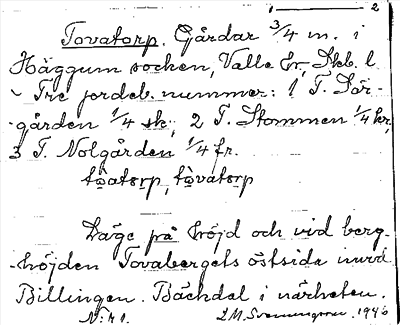 2
Tovatorp. Gårdar 3/4 m. i
Häggum socken, Valle hr, Skb. l.
Tre jordeb. nummer: 1 T. Sör-
-gården 1/4 sk, 2 T. Stommen 1/4 kr,
3 T. Nolgården 1/4 fr.
tòatorp, tòvatorp
Läge på höjd och vid berg-
-höjden Tovabergets östsida invid
Billingen. Bäckdal i närheten.
N:r 1. 1946